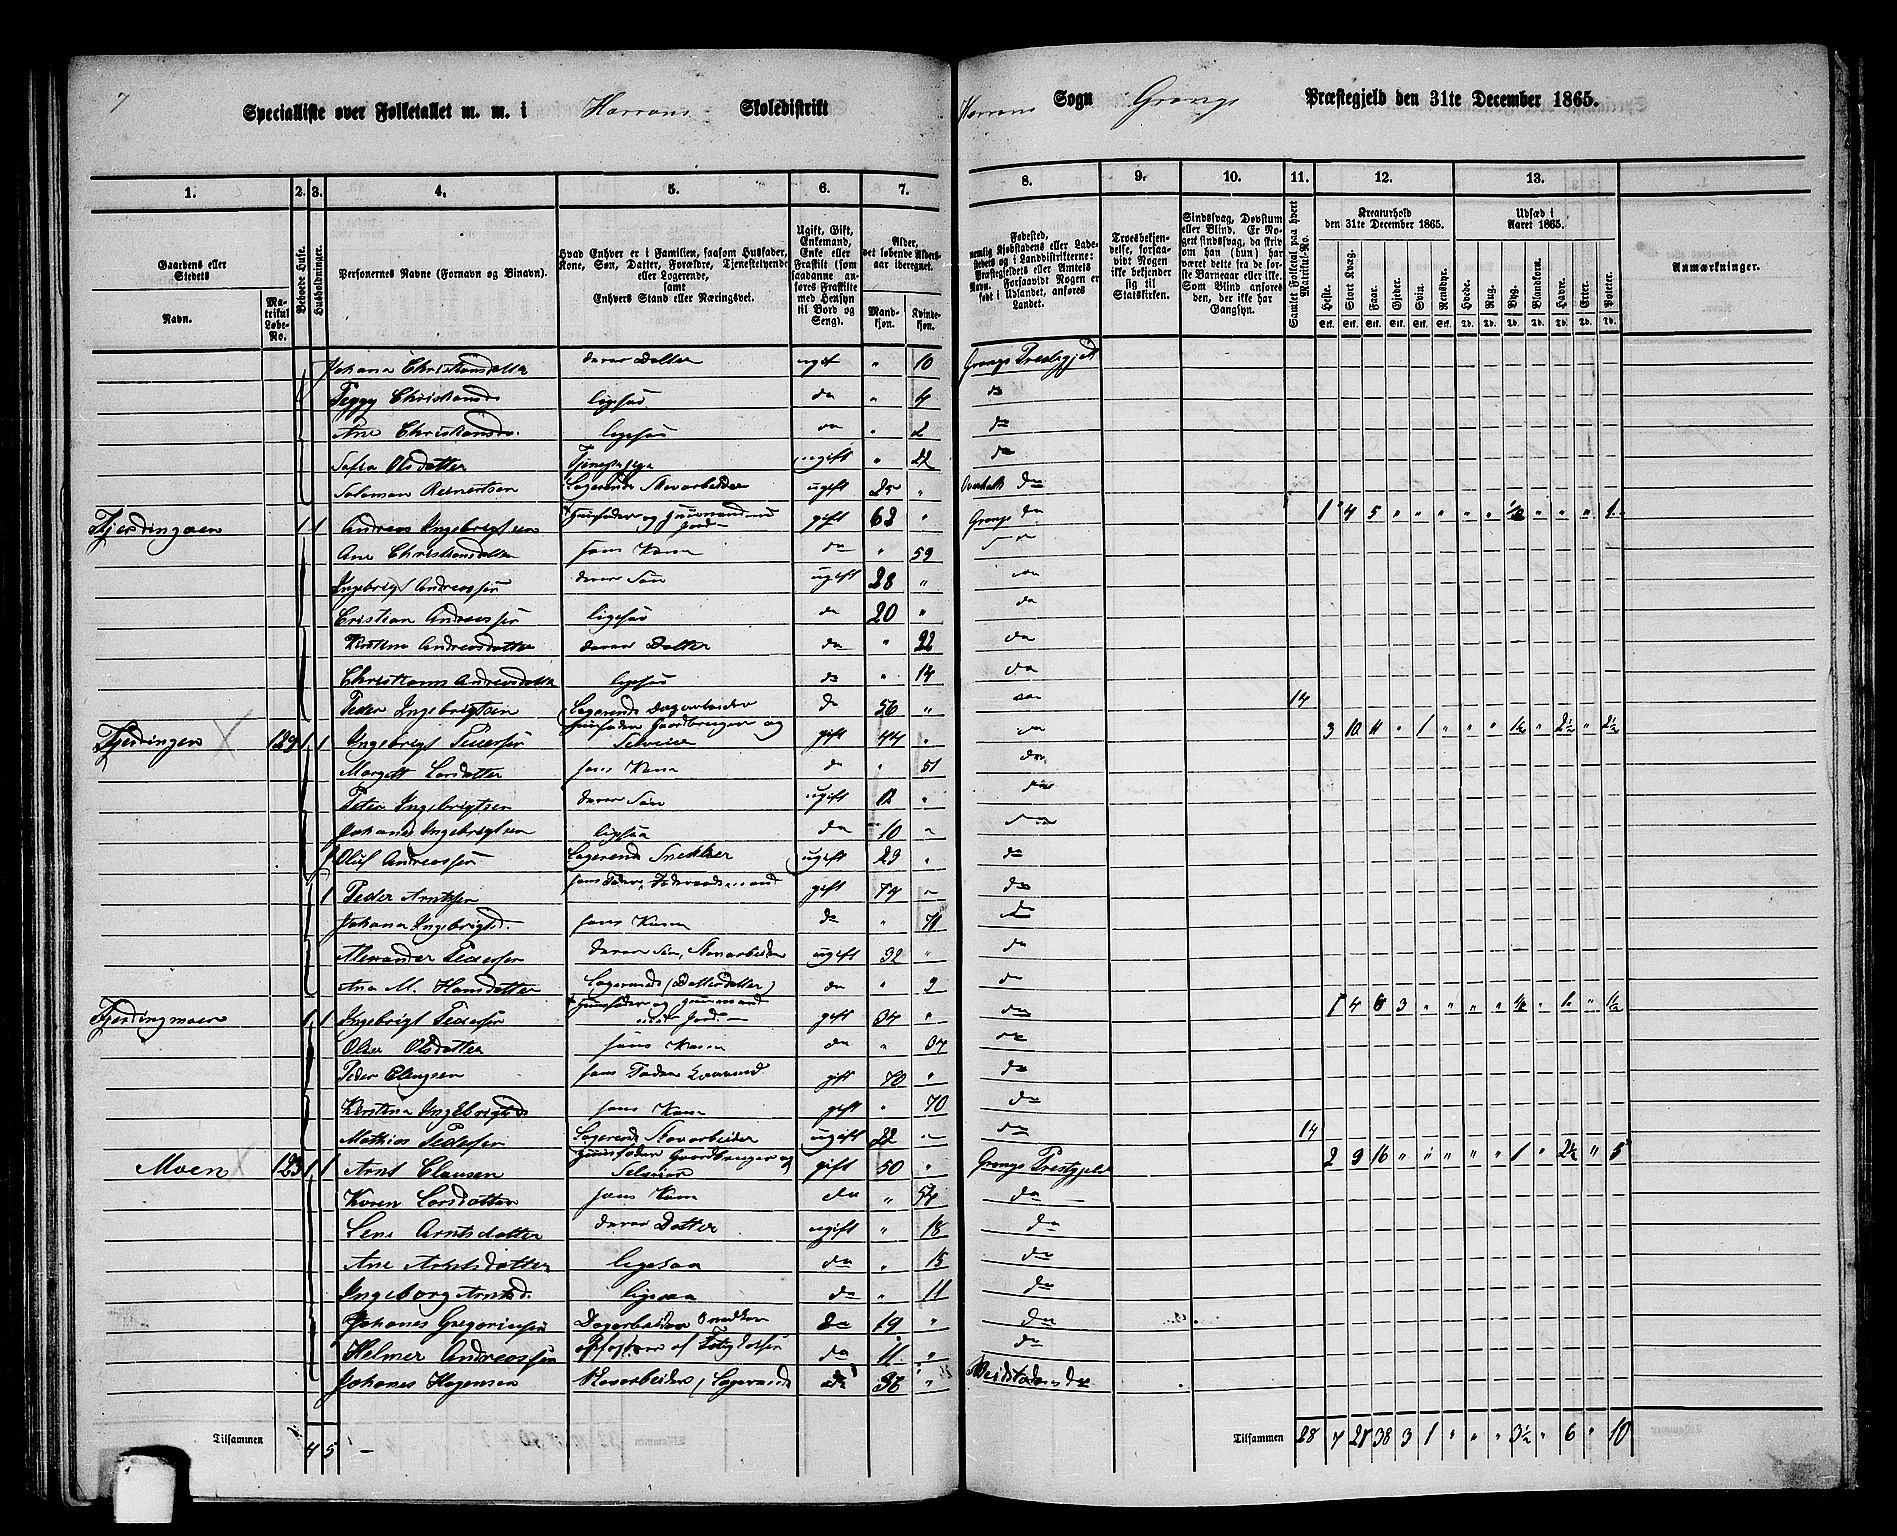 7
Specialliste over Folketallet m. m. i Harrans Skoledistrikt Harrans Sogn Grongs Præstegjeld den 31te December 1865.
1. 2. 3. 4. 5. 6. 7. 8. 9. 10. 11. 12. 13.
Gaardens eller Stedets Navn. Matrikul Løbe-No. Beboede Huse. Husholdninger. Personernes Navne (Fornavn og Binavn). Hvad Enhver er i Familien, saasom Husfader, Kone, Søn, Datter, Forældre, Tjenestetyende eller Logerende, samt Enhvers Stand eller Næringsvei. Ugift, Gift, Enkemand, Enke eller Fraskilt (som saadanne anføres Fraskilte med Hensyn til Bord og Seng). Alder, det løbende Alders-aar iberegnet. Mandkjøn. Kvindekjøn.
Fødested, nemlig Kjøbstadens eller Ladestedets og i Landdistrikterne: Præstegjeldets eller Amtets Navn. Forsaavidt Nogen er født i Udlandet, anføres Landet. Troesbekjendelse, forsaavidt Nogen ikke bekjender sig til Statskirken. Sindssvag, Døvstum eller Blind. Er Nogen sindssvag, da skriv om han (hun) har været dette fra de første Barneaar eller ikke. Som Blind anføres den, der ikke har Gangsyn. Samlet Folketal paa hvert Matrikul-No. Kreaturhold den 31te December 1865. Udsæd i Aaret 1865. Anmærkninger.
Heste. Stort Kvæg. Faar. Gjeder. Svin. Rensdyr. Hvede. Rug. Byg. Blandkorn. Havre. Erter. Poteter.
Stk. Stk. Stk. Stk. Stk. Stk. Td. Td. Td. Td. Td. Td. Td.
Johana Christiansdatter deres Datter ugift " 10 Grongs Prestegjeld
Peggy Christiansd. ligesaa do " 4 do
Ane Christiansd. ligesaa do " 2 do
Sofia Olsdatter Tjenestepige ugift " 22 do
Salomon Reinertsen Logerende Skovarbeider ugift 25 " Overhalls do
Fjerdingmoen 1 1 Andreas Ingebrigtsen Huusfader og Huusmand med Jord gift 62 " Grongs do 1 4 5 " " " " " ½ " " " 1
Ane Christiansdatter hans Kone do " 59 do
Ingebrigt Andreassen deres Søn ugift 28 " do
Cristian Andreassen ligesaa do 20 " do
Kirstina Andreasdatter deres Datter do " 22 do
Christianna Andreasdatter ligesaa do " 14 do
Peder Ingebrigtsen Logerende Dagarbeider do 56 " do 14
Fjerdingen X 129 1 1 Ingebrigt Pedersen Huusfader Gaardbruger og Selveier gift 44 " do 3 10 11 " 1 " " " 1½ " 2½ " 2½
Margrett Larsdatter hans Kone do " 51 do
Peter Ingebrigtsen deres Søn ugift 12 " do
Johanes Ingebrigtsen ligesaa do 10 " do
Oluf Andreassen Logerende Snedker ugift 23 " do
1 Peder Arntsen hans Fader, Føderaadsmand gift 74 " do
Johana Ingebrigtsd. hans Kone do " 71 do
Alexander Pedersen deres Søn, Skovarbeider ugift 32 " do
Ane M. Hansdatter Logerende (Datterdatter) do " 9 do
Fjerdingmoen 1 1 Ingebrigt Pedersen Huusfader og Huusmand med Jord gift 34 " do 1 4 6 3 " " " " ½ " 1 " 1½
Oline Olsdatter hans Kone do " 34 do
Peder Ellingsen hans Fader gift 70 " do
Kirstina Ingebrigtsd. hans Kone gift " 70 do
Mathias Pedersen Logerende Skovarbeider ugift 22 " do 14
Moen X 123 1 1 Arnt Clausen Huusfader Gaardbruger og Selveier gift 50 " Grongs Prestegjeld 2 9 16 " " " " " 1 " 2½ " 5
Karen Larsdatter hans Kone do " 54 do
Lene Arntsdatter deres Datter ugift " 18 do
Ane Arntsdatter ligesaa do " 13 do
Ingeborg Arntsd. ligesaa do " 11 do
Johanes Gregoriussen Dagarbeider do 19 " do
Helmer Andreassen do 11 " do
Johanes Hagensen Skovarbeider, Logerende do 36 " do
Tilsammen 4 5 Tilsammen 28 7 27 38 3 1 " " " 3½ " 6 " 10